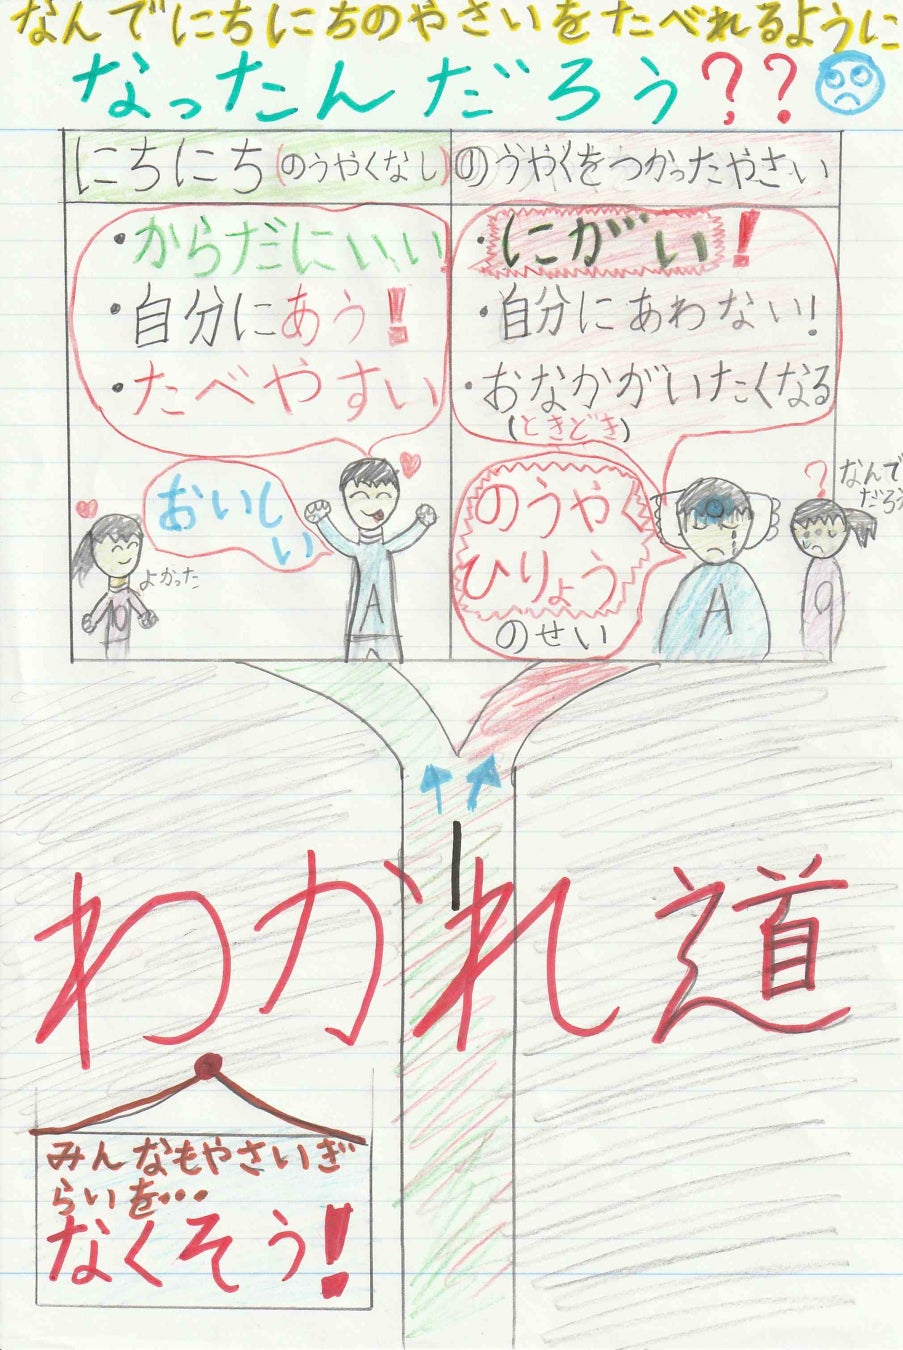 なんでにちにちのやさいをたべれるように
なったんだろう??
にちにち(のうやくなし)
・からだにいい
・自分にあう!
・たべやすい
おいし
い
よかった
A
のうやくをつかったやさい
・にがい!
・自分にあわない!
・おなかがいたくなる
(ときどき)
のうやく
ひりょう
のせい
A
?
なんで
だろう
わかれ道
みんなもやさいぎ
らいを・・・
なくそう!